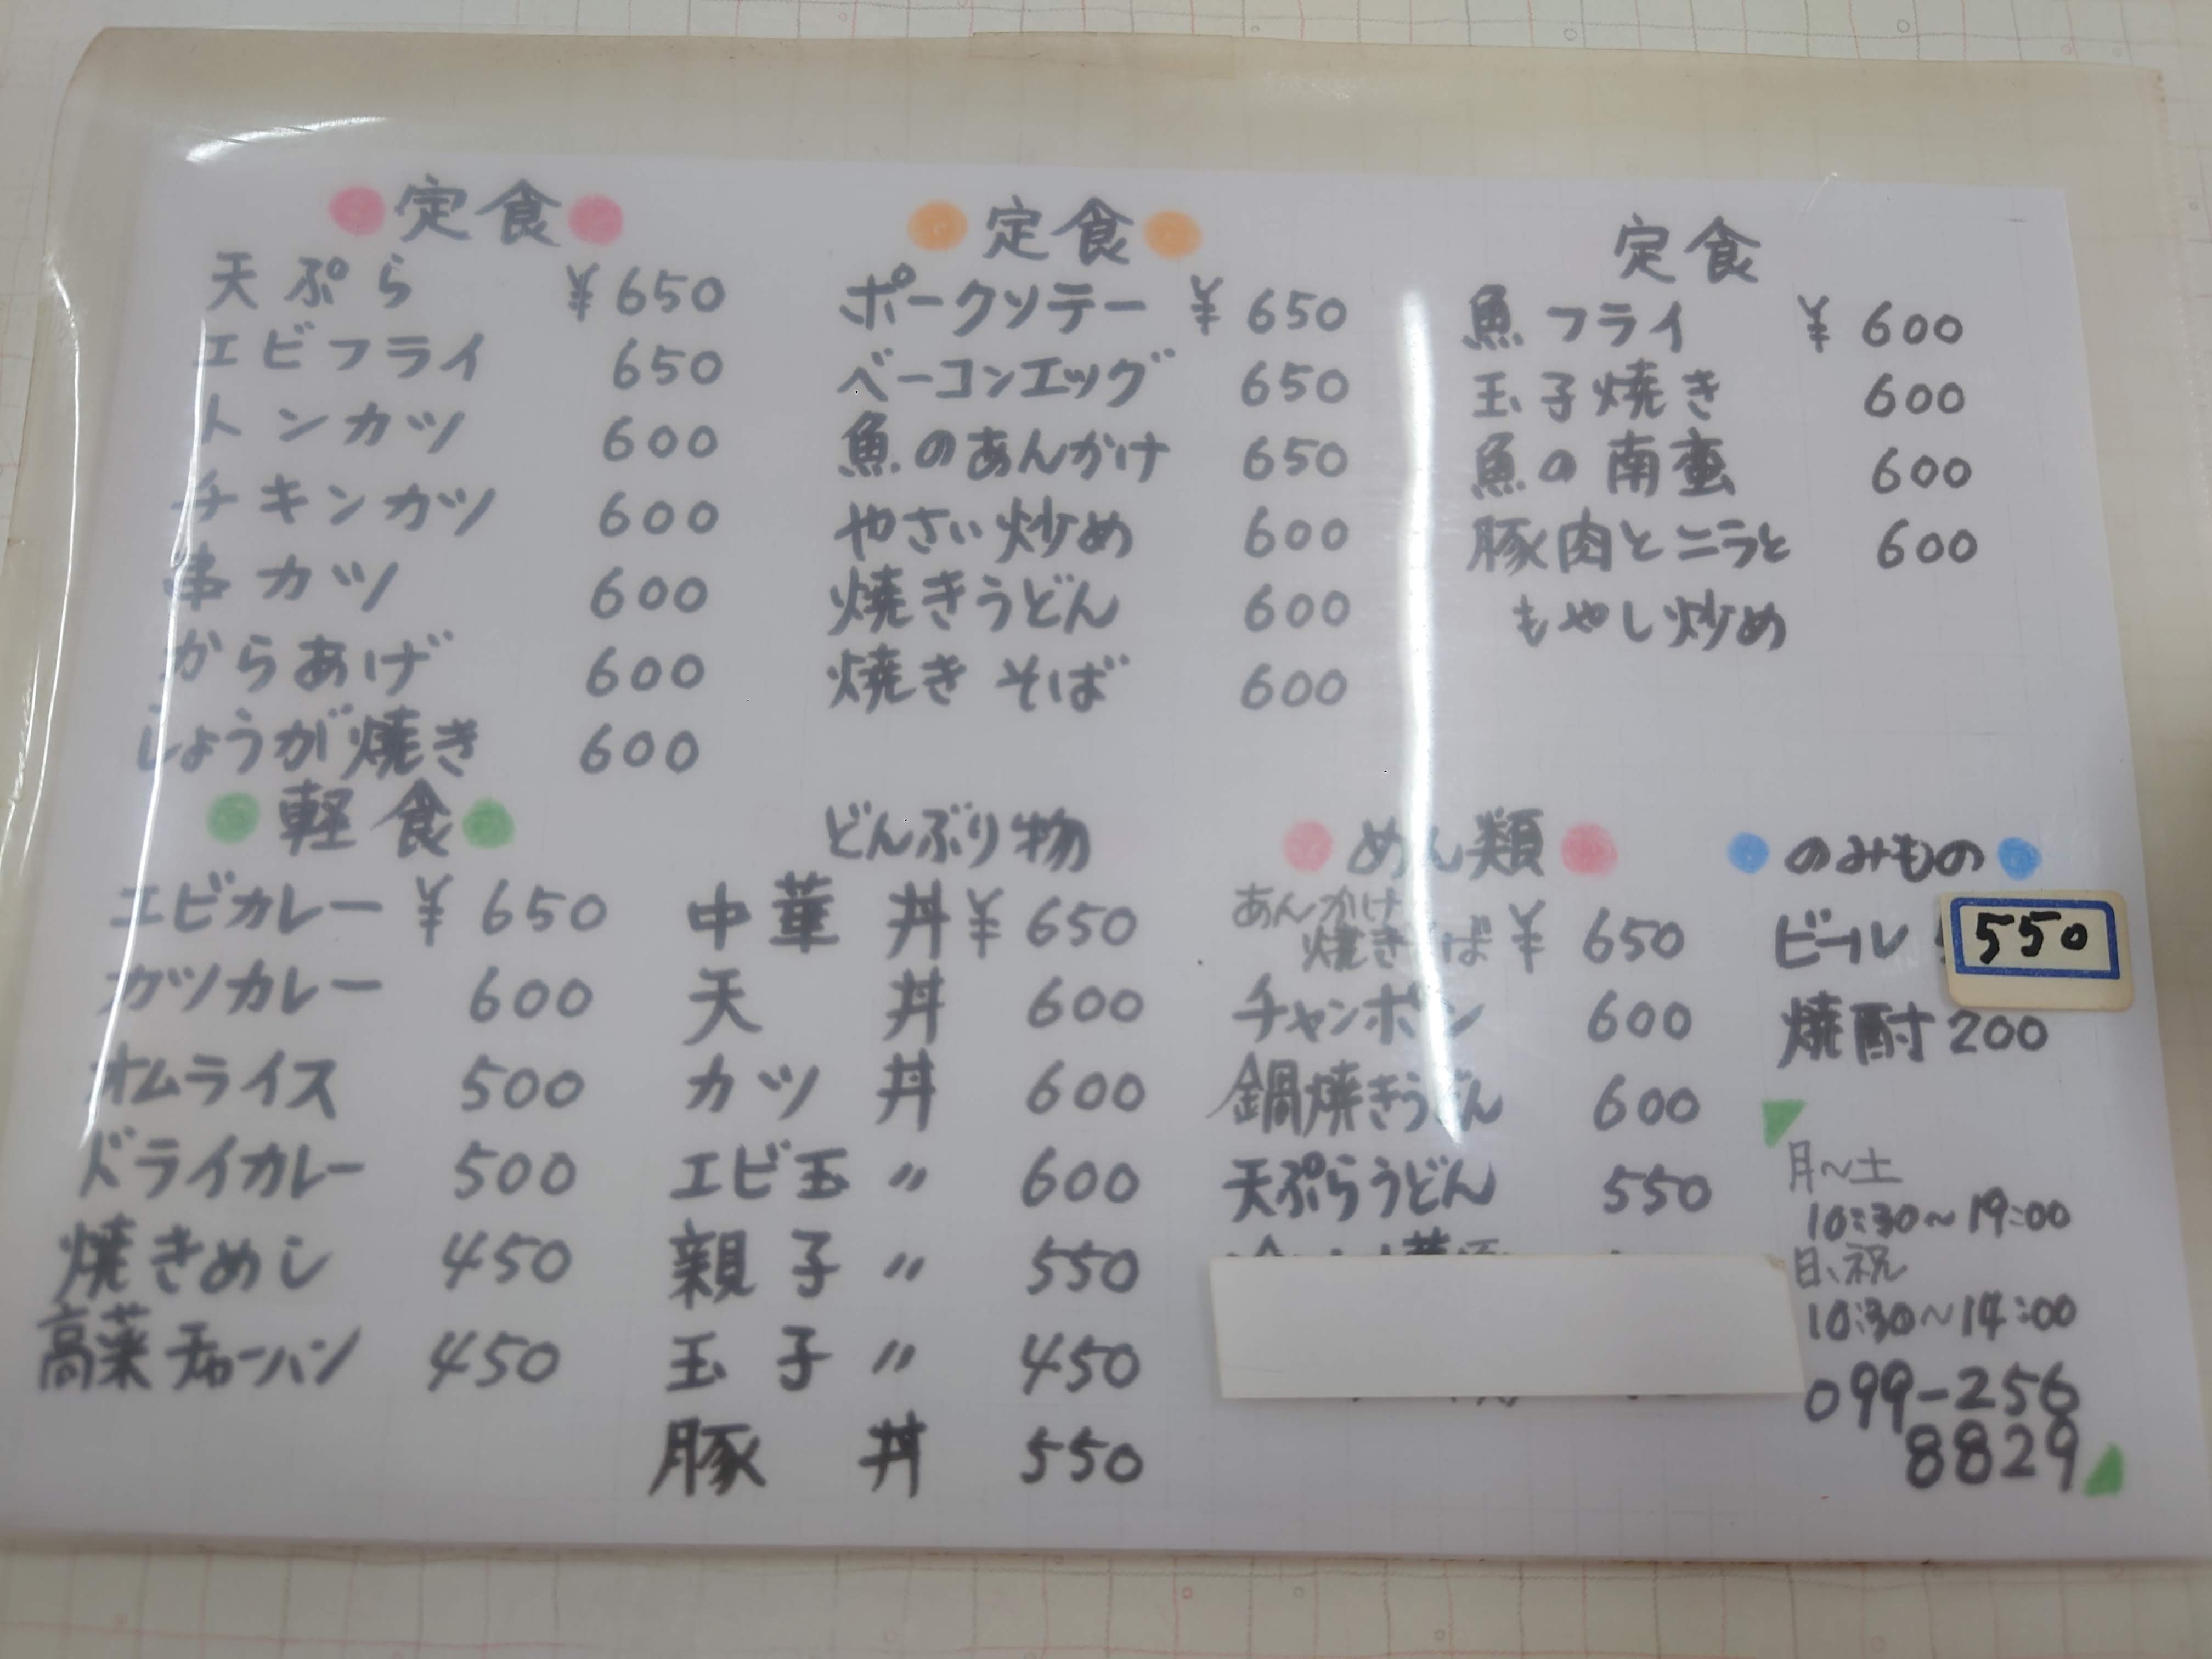 定食
天ぷら ¥650
エビフライ 650
トンカツ 600
チキンカツ 600
串カツ 600
からあげ 600
しょうが焼き 600
定食
ポークソテー ¥650
ベーコンエッグ 650
魚のあんかけ 650
やさい炒め 600
焼きうどん 600
焼きそば 600
定食
魚フライ ¥600
玉子焼き 600
魚の南蛮 600
豚肉とニラと 600
もやし炒め
軽食
エビカレー ¥650
カツカレー 600
オムライス 500
ドライカレー 500
焼きめし 450
高菜チャーハン 450
どんぶり物
中華丼 ¥650
天丼 600
カツ丼 600
エビ玉〃 600
親子〃 550
玉子〃 450
豚丼 550
めん類
あんかけ
焼きそば ¥650
チャンポン 600
鍋焼きうどん 600
天ぷらうどん 550
のみもの
ビール 550
焼酎 200
月〜土
10:30〜19:00
日、祝
10:30〜14:00
099-256
8829